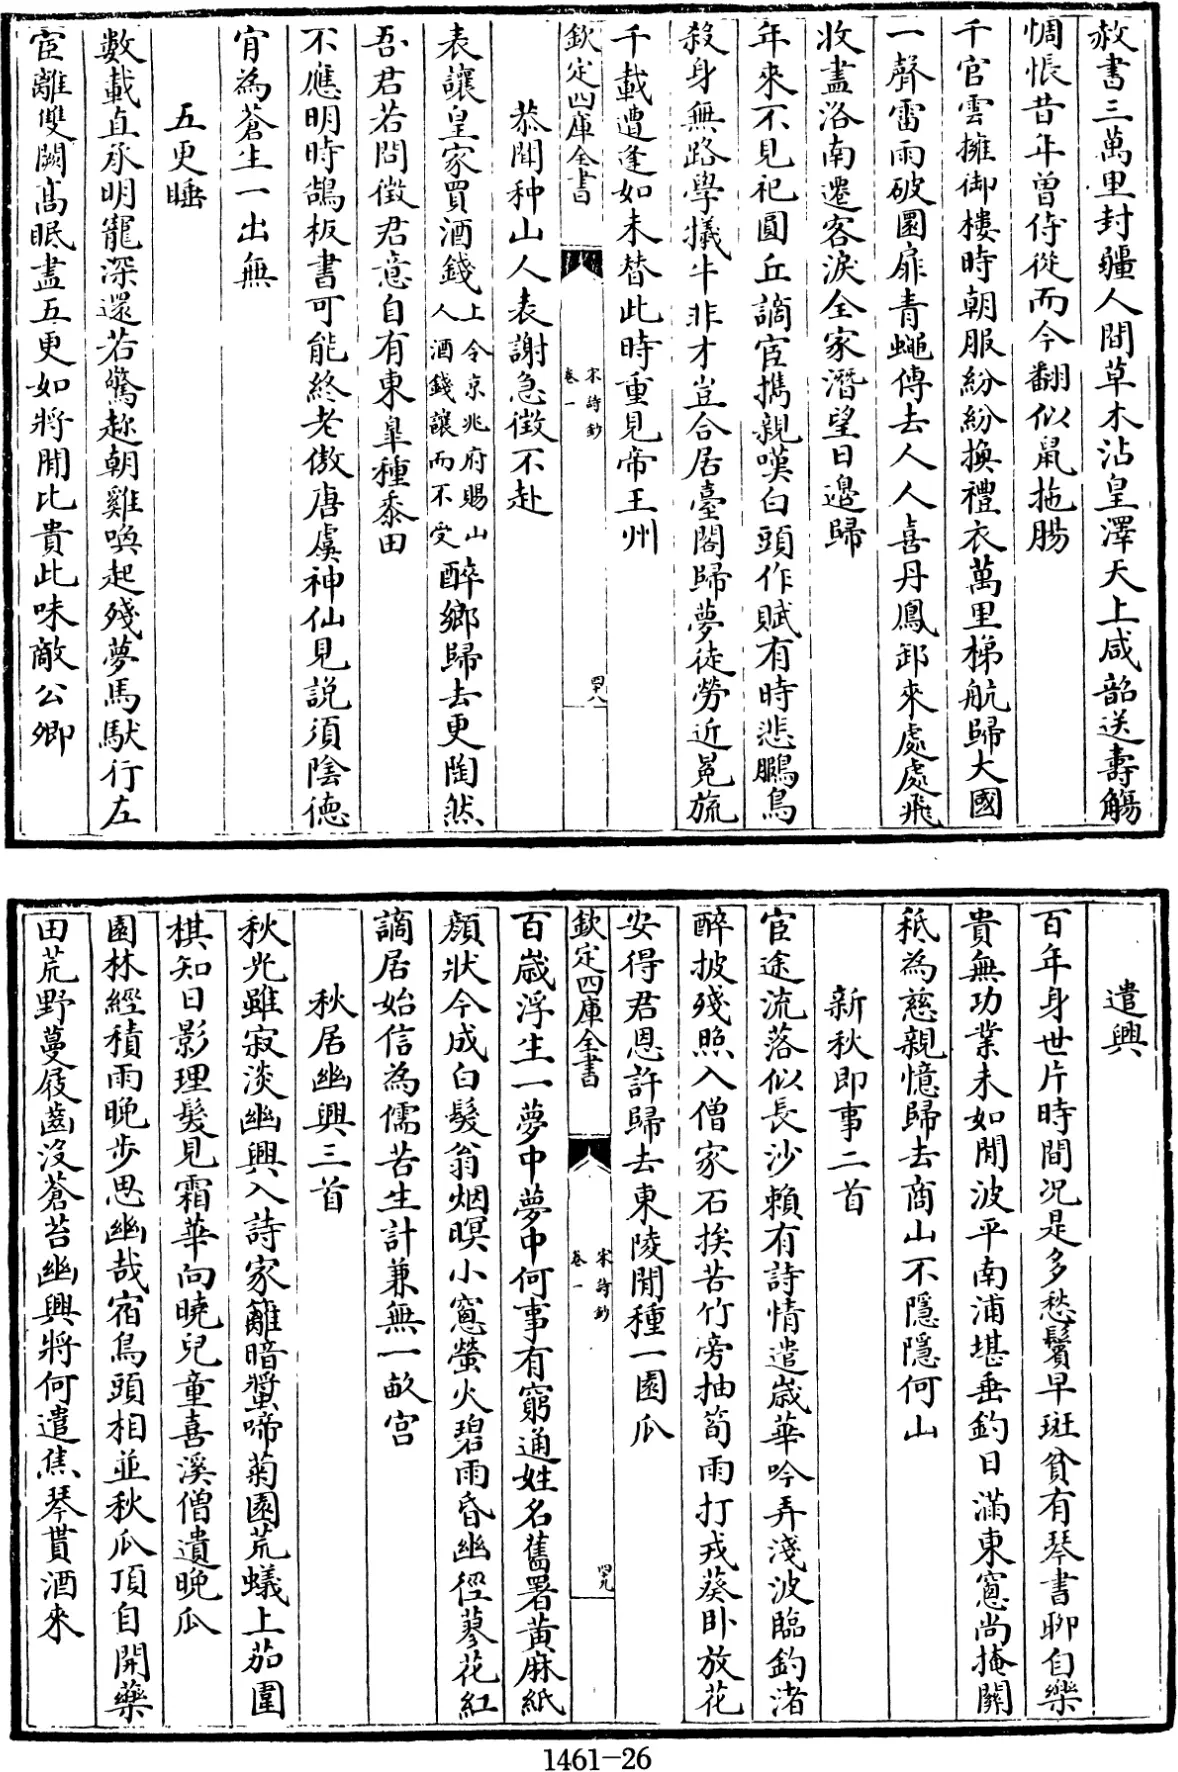 赦書三萬里封疆人間草木沾皇澤天上咸韶送壽觴
惆悵昔年曾侍從而今翻似鼠拖腸
千官雲擁御樓時朝服紛紛換禮衣萬里梯航歸大國
一聲雷雨破圜扉青蠅傳去人人喜丹鳳卸來處處飛
收盡洛南遷客淚全家潛望日邉歸
年來不見祀圓丘謫宦携親嘆白頭作賦有時悲鵩鳥
殺身無路學犧牛非才豈合居臺閣歸夢徒勞近冕旒
千載遭逢如未替此時重見帝王州
欽定四庫全書
宋詩鈔
卷一
四十八
恭聞种山人表謝急徴不赴
表讓皇家買酒錢上令京兆府賜山人酒錢讓而不受醉鄉歸去更陶然
吾君若問徴君意自有東臯種黍田
不應明時鵠板書可能終老傲唐虞神仙見說須陰德
肯為蒼生一出無
五更睡
數載直承明寵深還若驚趂朝雞喚起殘夢馬馱行左
宦離雙闕高眠盡五更如將閒比貴此味敵公卿
遣興
百年身世片時間况是多愁鬢早斑貧有琴書聊自樂
貴無功業未如閒波平南浦堪垂釣日滿東窻尚掩關
秪為慈親憶歸去商山不隠隠何山
新秋即事二首
宦途流落似長沙頼有詩情遣歳華吟弄淺波臨釣渚
醉披殘照入僧家石挨苦竹旁抽筍雨打戎葵卧放花
安得君恩許歸去東陵閒種一園瓜
欽定四庫全書
宋詩鈔
卷一
四九
百歳浮生一夢中夢中何事有窮通姓名舊署黄麻紙
顔狀今成白髮翁烟暝小窻螢火碧雨昏幽徑蓼花紅
謫居始信為儒苦生計兼無一畝宫
秋居幽興三首
秋光雖寂淡幽興入詩家籬暗蛩啼菊園荒蟻上茄圍
棋知日影理髮見霜華向曉兒童喜溪僧遺晚瓜
園林經積雨晚步思幽哉宿鳥頭相並秋瓜頂自開藥
田荒野蔓屐齒沒蒼苔幽興將何遣焦琴貰酒來
1461-26